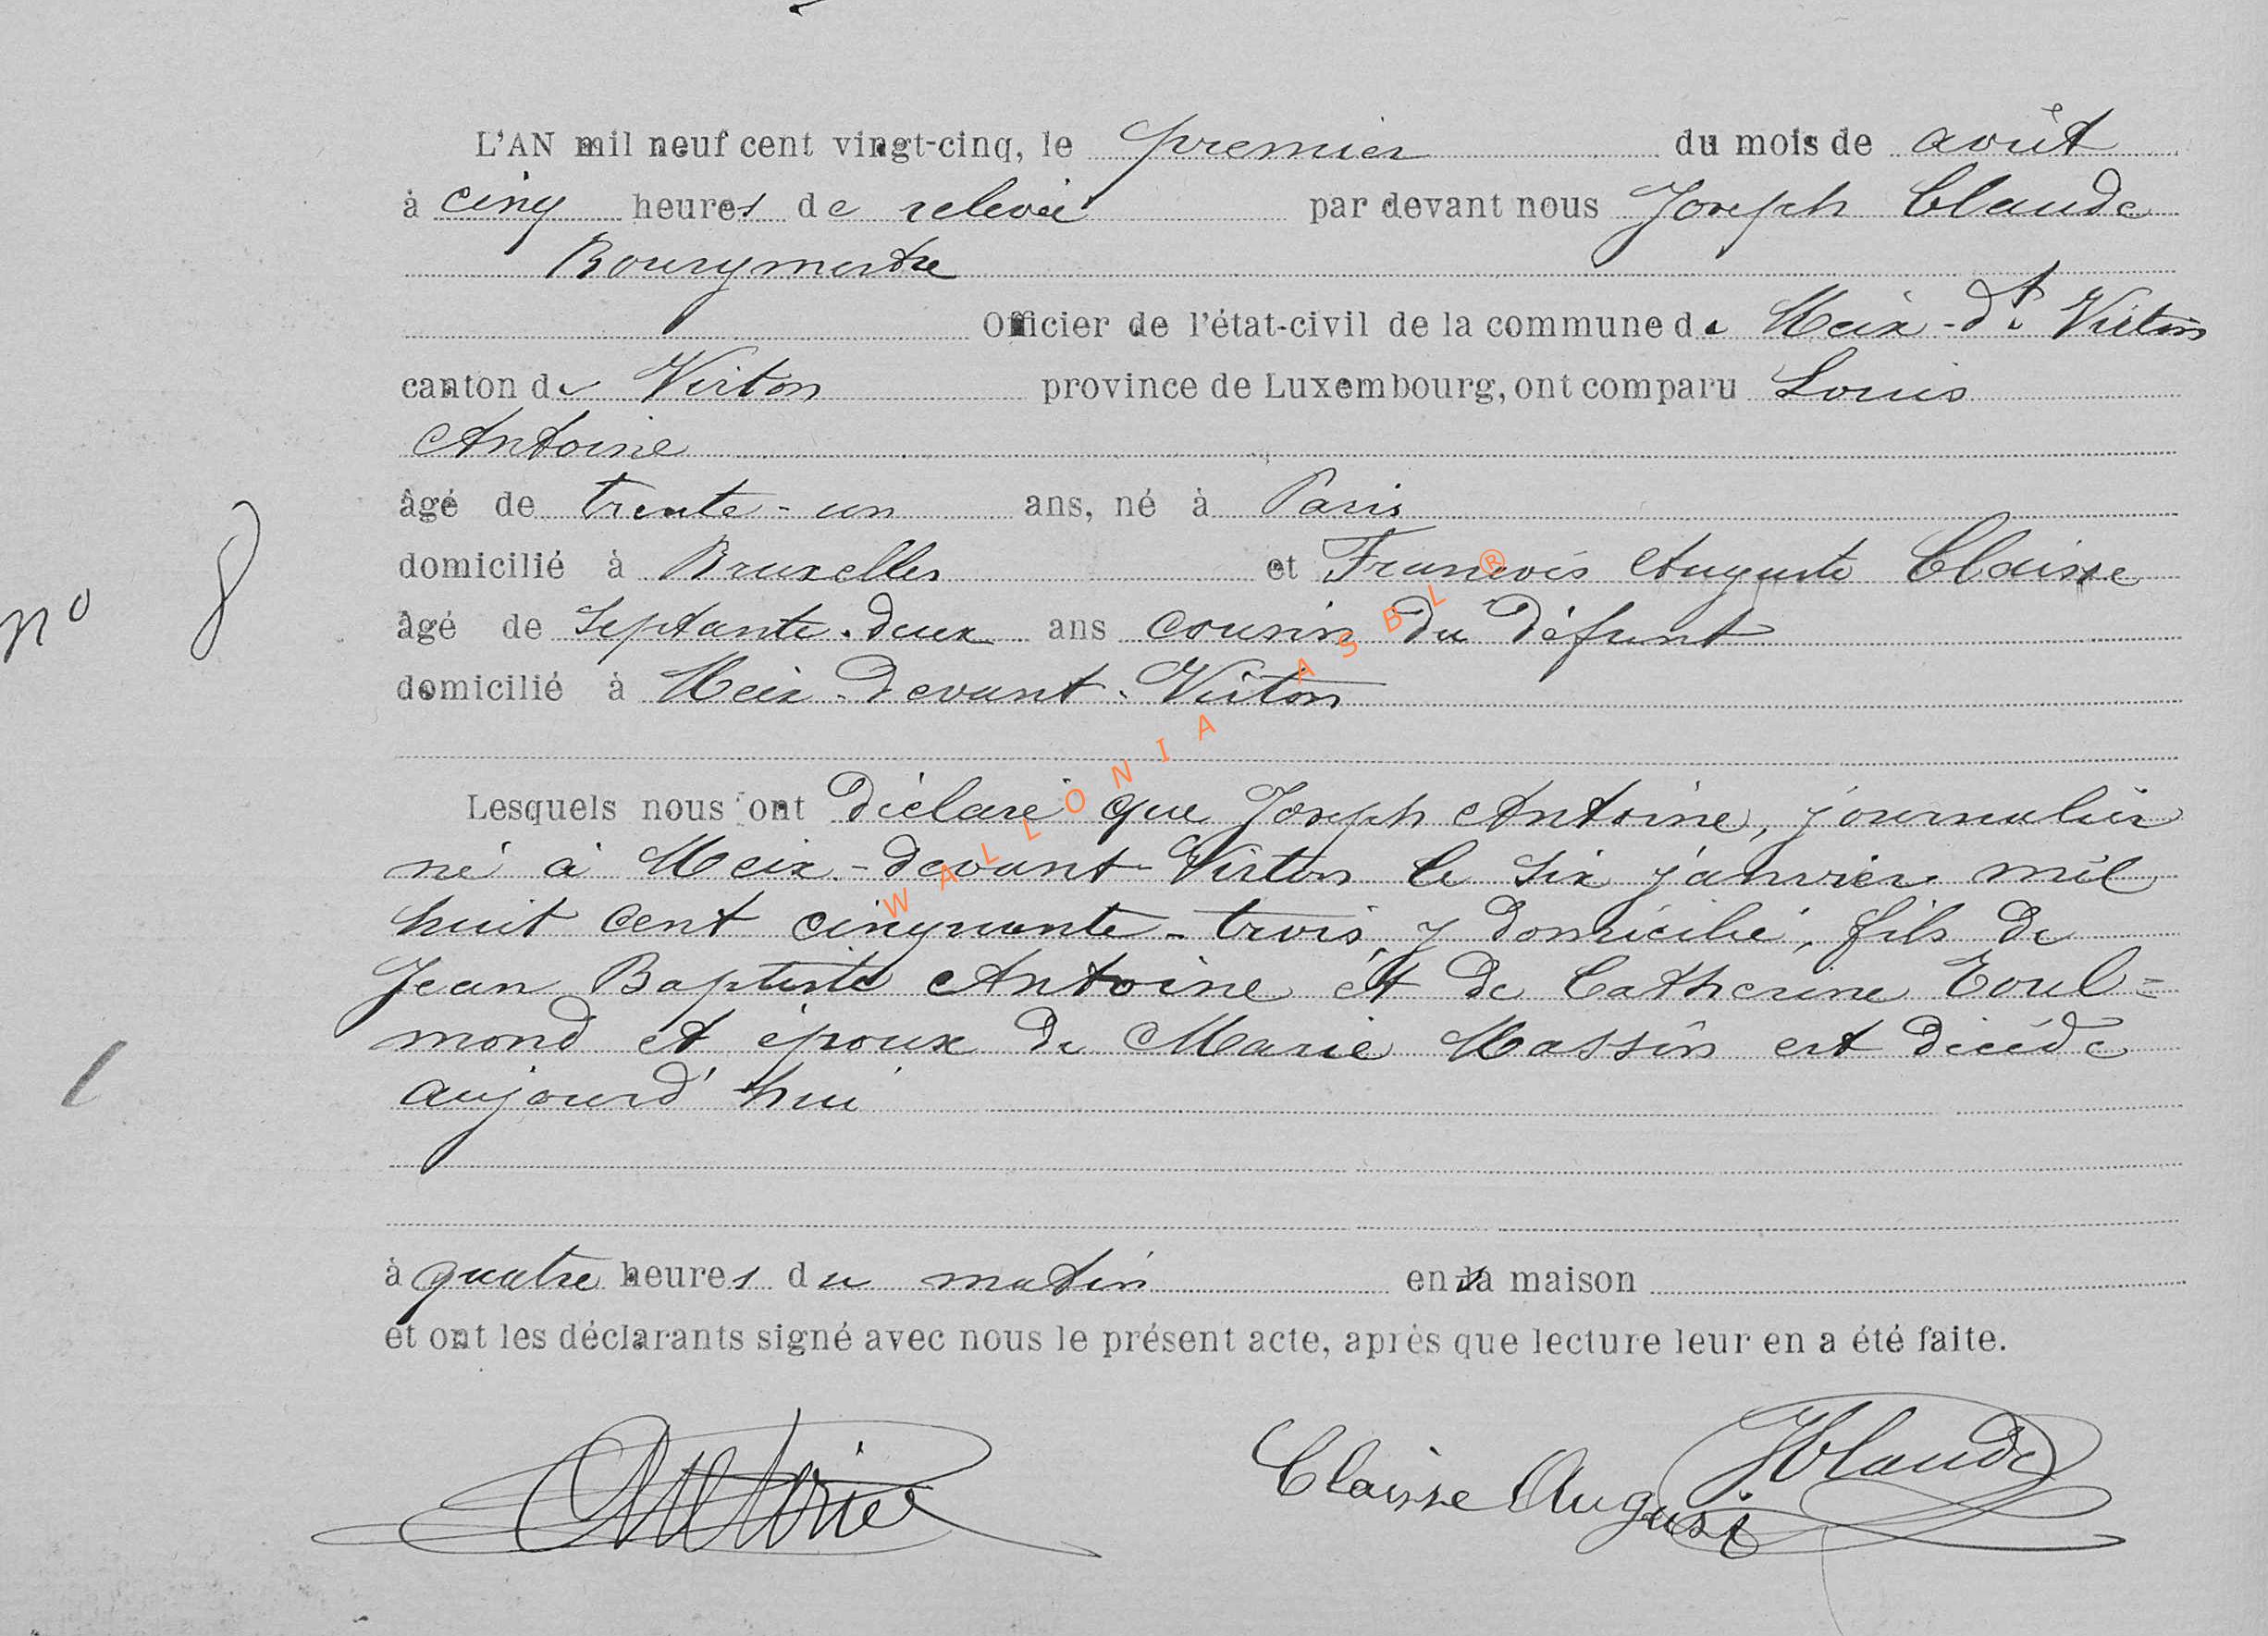 L'AN mil neuf cent vingt-cinq, le premier du mois de août
à cinq heures de relevée par devant nous Joseph Claude
Bourgmestre
Officier de l'état-civil de la commune de Meix-dt Virton
canton de Virton province de Luxembourg, ont comparu Louis
Antoine
âgé de trente-un ans, né à Paris
domicilié à Bruxelles et François Auguste Claisse
nº 8
âgé de septante-deux ans cousin du défunt
domicilié à Meix-devant-Virton
Lesquels nous ont déclaré que Joseph Antoine, journalier
né à Meix-devant-Virton le six janvier mil
huit cent cinquante-trois, y domicilié, fils de
Jean Baptiste Antoine et de Catherine Toul=
mond et époux de Marie Massin est décédé
aujourd'hui
à quatre heures du matin en sa maison
et ont les déclarants signé avec nous le présent acte, après que lecture leur en a été faite.
Antoine Claisse August JClaude
WALLONIA ASBL ®